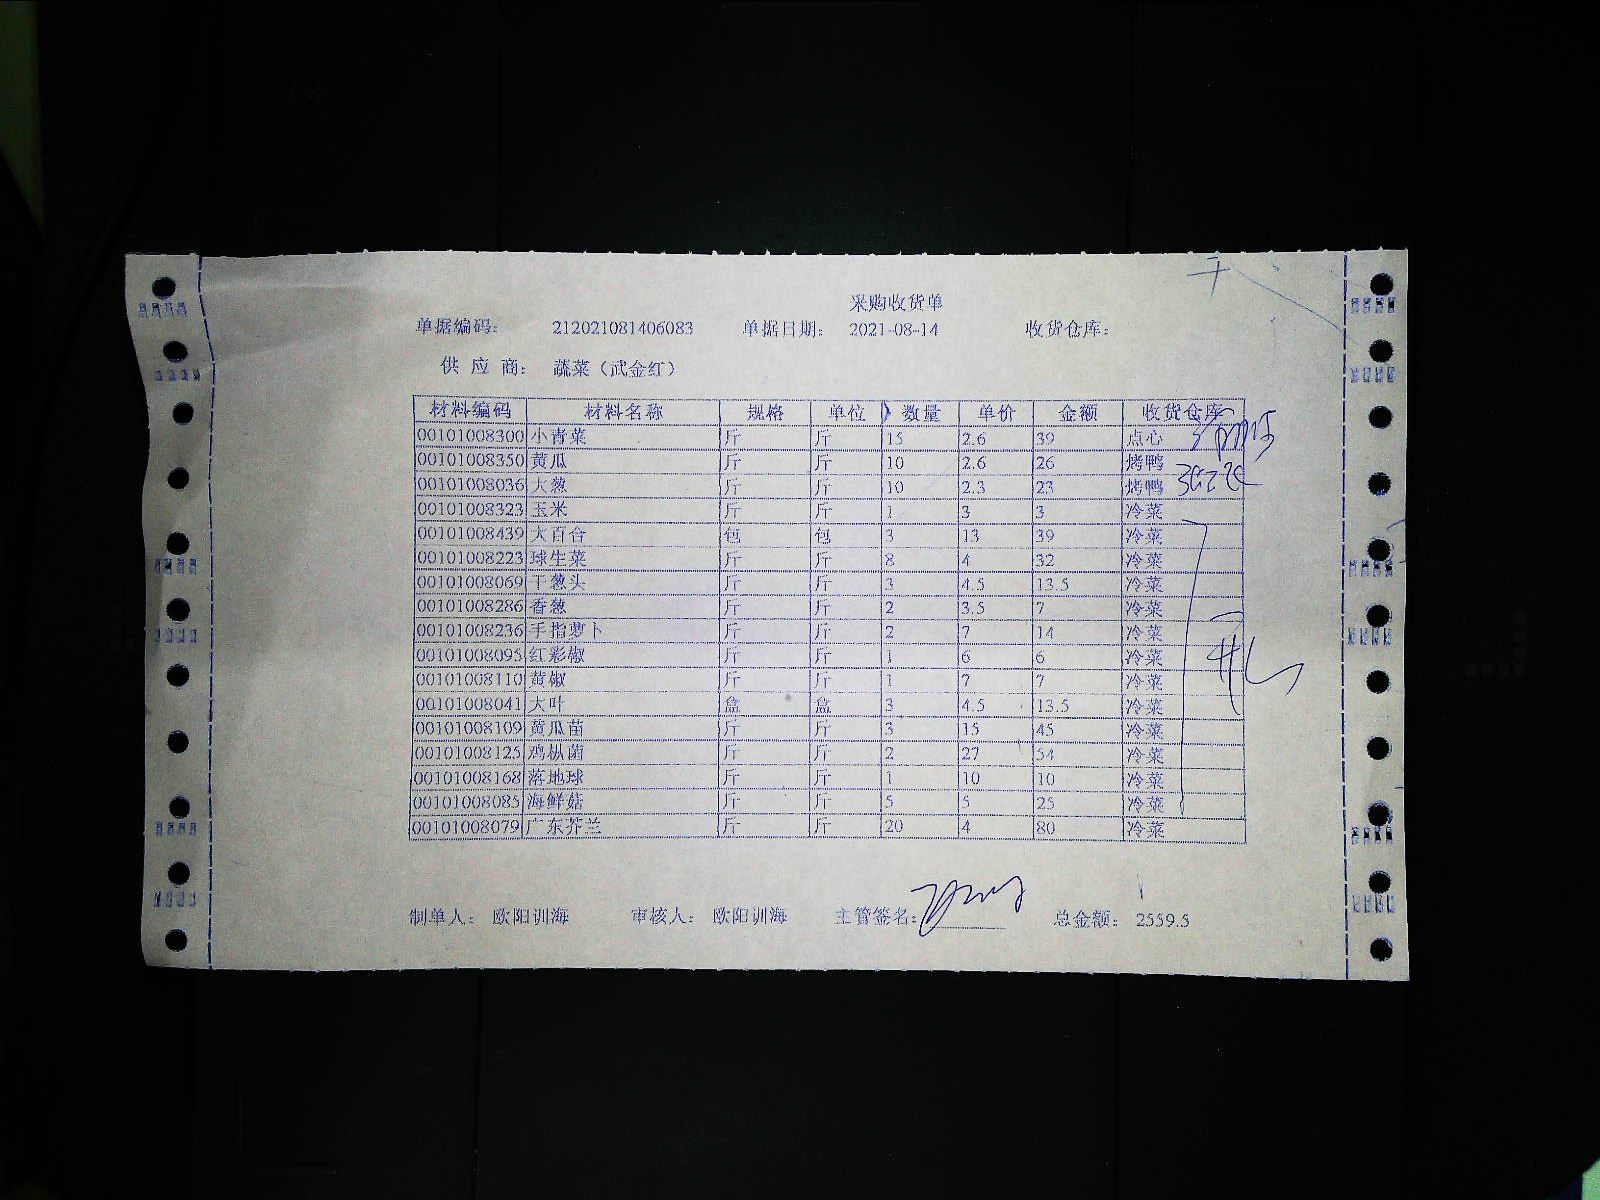 采购收货单
单据编码： 212021081406083 单据日期： 2021-08-14 收货仓库：
供 应 商： 蔬菜（武金红）
材料编码 材料名称 规格 单位 数量 单价 金额 收货仓库
00101008300 小青菜 斤 斤 15 2.6 39 点心
00101008350 黄瓜 斤 斤 10 2.6 26 烤鸭
00101008036 大葱 斤 斤 10 2.3 23 烤鸭
00101008323 玉米 斤 斤 1 3 3 冷菜
00101008439 大百合 包 包 3 13 39 冷菜
00101008223 球生菜 斤 斤 8 4 32 冷菜
00101008069 干葱头 斤 斤 3 4.5 13.5 冷菜
00101008286 香葱 斤 斤 2 3.5 7 冷菜
00101008236 手指萝卜 斤 斤 2 7 14 冷菜
00101008095 红彩椒 斤 斤 1 6 6 冷菜
00101008110 黄椒 斤 斤 1 7 7 冷菜
00101008041 大叶 盒 盒 3 4.5 13.5 冷菜
00101008109 黄瓜苗 斤 斤 3 15 45 冷菜
00101008125 鸡枞菌 斤 斤 2 27 54 冷菜
00101008168 落地球 斤 斤 1 10 10 冷菜
00101008085 海鲜菇 斤 斤 5 5 25 冷菜
00101008079 广东芥兰 斤 斤 20 4 80 冷菜
制单人： 欧阳训海 审核人： 欧阳训海 主管签名： 总金额： 2559.5